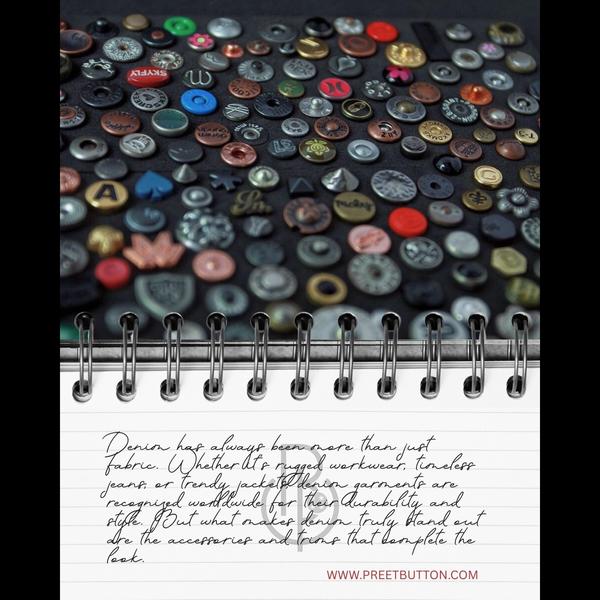 SKYFLY
A
Denim has always been more than just
fabric. Whether it's rugged workwear, timeless
jeans, or trendy jackets, denim garments are
recognized worldwide for their durability and
style. But what makes denim truly stand out
are the accessories and trims that complete the
look.
WWW.PREETBUTTON.COM